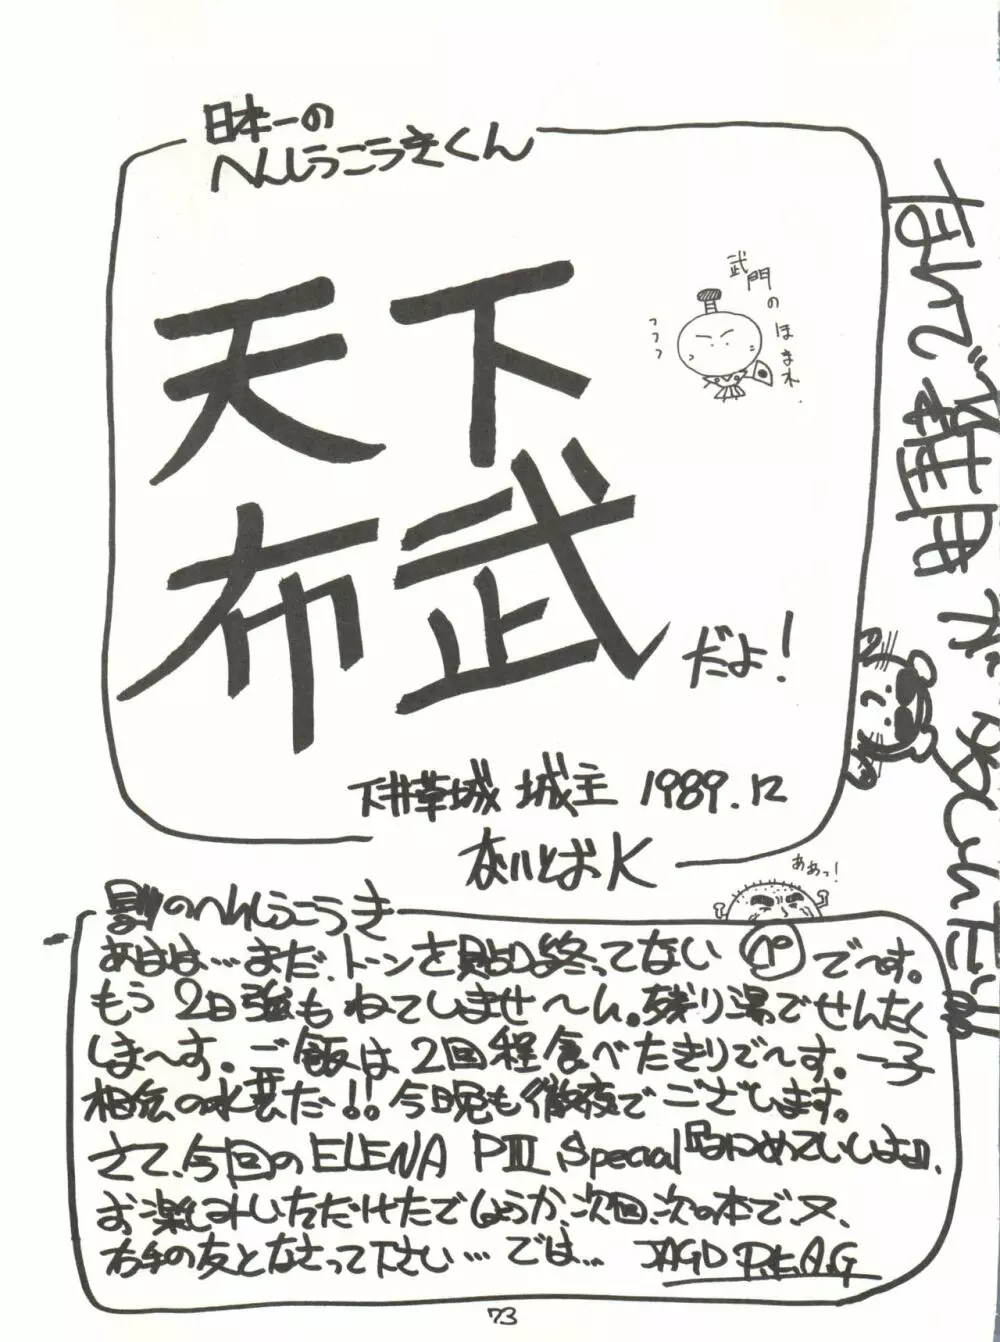 日本一の
へんしうこうきくん
天下
布武
だよ!
武門のほまれ.
フフフ
下井草城 城主 1989.12
なんで雑用が
ああっ!
のへんしうこうき
あはは…まだ、トーンさえ貼り終ってない ペ で〜す。
もう2日強もねてしませ〜ん。残り湯でせんたく
しま〜す。ご飯は2回程食べたきりで〜す。一子
相伝の水芸だ!!今晩も徹夜でございます。
さて、今回のELENA PⅢ Special
お楽しみいただけたでしょうか、次回、次の本で、又、
右手の友となさって下さい…では… JAGD P.E.A.G
73